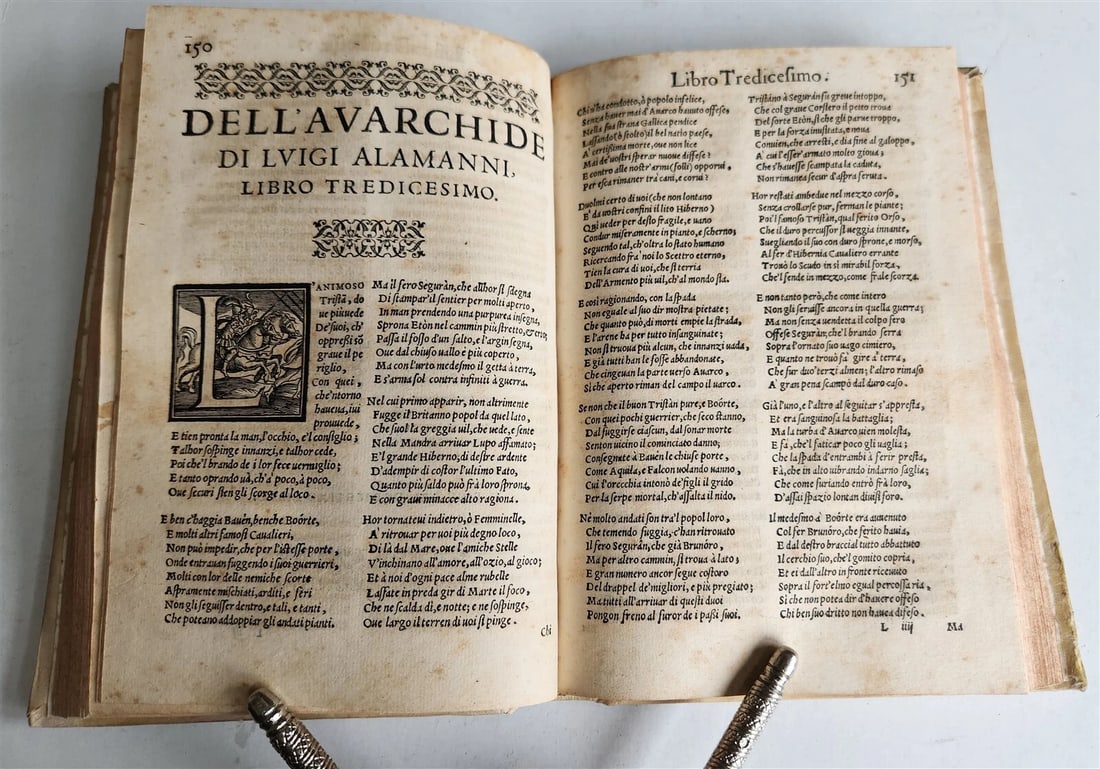 150
DELL'AVARCHIDE
DI LVIGI ALAMANNI,
LIBRO TREDICESIMO.
L'ANIMOSO
Tristā, do
ue più uede
De' suoi, ch'
oppreßi sō
graue il pe
riglio,
Con quei,
che'ntorno
haueua, iui
prouuede,
E tien pronta la man, l'occhio, e'l consiglio;
Talhor sospinge innanzi, e talhor cede,
Poi che'l brando de i lor fece uermiglio;
E tanto oprando uà, ch'à poco, à poco,
Oue securi sien gli scorge al loco.
E ben c'haggia Bauèn, benche Boörte,
E molti altri famosi Caualieri,
Non può impedir, che per l'istesse porte,
Onde entrauan fuggendo i suoi guerrieri,
Molti con lor delle nemiche scorte
Aspramente mischiati, arditi, e feri
Non gli seguisser dentro, e tali, e tanti,
Che poteano addoppiar gli andati pianti.
Ma il fero Seguràn, che allhor si sdegna
Di stampar il sentier per molti aperto,
In man prendendo una purpurea insegna,
Sprona Etòn nel cammin più stretto, & erto;
Passa il fosso d'un salto, e l'argin segna,
Oue dal chiuso uallo è più coperto,
Ma con l'urto medesmo il getta à terra,
E s'arma sol contra infiniti à guerra.
Nel cui primo apparir, non altrimente
Fugge il Britanno popol da quel lato,
Che suol la greggia uil, che uede, e sente
Nella Mandra arriuar Lupo affamato;
E'l grande Hiberno, di desire ardente
D'adempir di costor l'ultimo Fato,
Quanto più saldo può frà loro sprona,
E con graui minacce alto ragiona.
Hor tornateui indietro, ò Femminelle,
A' ritrouar per uoi più degno loco,
Di là dal Mare, oue l'amiche Stelle
V'inchinano all'amore, all'ozio, al gioco;
Et à noi d'ogni pace alme rubelle
Lassate in preda gir di Marte il foco,
Che ne scalda dì, e notte; e ne sospinge,
Oue largo il terren di uoi si pinge.
Chi
Libro Tredicesimo. 151
Chi u'ha condotto, ò popolo infelice,
Senza hauer mai d'Auarco hauuto offese,
Nella sua strana Gallica pendice
Lassando (è stolto) il bel natio paese,
A' certissima morte, oue non lice
Mai de' uostri sperar nuoue difese?
E contro alle nostr'armi (folli) opporui,
Per esca rimaner tra cani, e corui?
Duolmi certo di uoi (che non lontano
E' da uostri confini il lito Hiberno)
Qui ueder per desto fragile, e uano
Condur miseramente in pianto, e scherno;
Seguendo tal, ch'oltra lo stato humano
Ricercando fra' noi lo Scettro eterno,
Tien la cura di uoi, che si terria
Dell'Armento più uil, ch'al mondo sia.
E così ragionando, con la spada
Non eguale al suo dir mostra pietate;
Che quanto può, di morti empie la strada,
E l'arene ha per tutto insanguinate;
Non si truoua più alcun, che innanzi uada,
E già tutti han le fosse abbandonate,
Che cinguean la parte uerso Auarco,
Sì che aperto riman del campo il uarco.
Se non che il buon Tristàn pure, e Boörte,
Con quei pochi guerrier, che seco stanno,
Dal fuggirse ciascun, dal sonar morte
Senton uicino il cominciato danno;
Consegnate à Bauèn le chiuse porte,
Come Aquila, e Falcon uolando uanno,
Cui l'orecchia intonò de' figli il grido
Per la serpe mortal, ch'assalta il nido.
Nè molto andati son tra'l popol loro,
Che temendo fuggia, c'han ritrouato
Il fero Seguràn, che già Brunóro,
Ma per altro cammin, si troua à lato;
E gran numero ancor segue costoro
Del drappel de' migliori, e più pregiato;
Ma tutti all'arriuar di questi duoi
Pongon freno al furor de i passi suoi.
Tristano à Seguràn fu greue intoppo,
Che col graue Corsiero il petto troua
Del forte Etòn, sì che gli parue troppo,
E per la forza inusitata, e noua
Conuien, che arresti, e dia fine al galoppo,
A' cui l'esser' armato molto gioua;
Che s'hauesse scampata la caduta,
Non rimanea securd'aspra feruta.
Hor restati ambedue nel mezzo corso,
Senza crollarse pur, ferman le piante;
Poi'l famoso Tristàn, qual ferito Orso,
Che il duro percussor si ueggia innante,
Suegliando il suo con duro sprone, e morso,
Al fer d'Hibernia Caualiero errante
Trouò lo Scudo in sì mirabil forza,
Che'l fende in mezzo, come frale scorza.
E non tanto però, che come intero
Non gli seruisse ancora in quella guerra;
Ma non senza uendetta il colpo fero
Offese Seguràn, che'l brando serra
Sopra l'ornato suo uago cimiero,
E quanto ne trouò fà gire à terra,
Che fur duo terzi almen; l'altro rimaso
A' gran pena scampò dal duro caso.
Già l'uno, e l'altro al seguitar s'appresta,
Et era sanguinosa la battaglia;
Ma la turba d'Auarco uien molesta,
E fà, che'l faticar poco gli uaglia;
Che la spada d'entrambi à ferir presta,
Fà, che in alto uibrando indarno saglia;
Che come furiando entrò frà loro,
D'assai spazio lontan diuisi foro.
Il medesmo à Boörte era auuenuto
Col fer Brunóro, che ferito hauia,
E dal destro bracciul tutto abbattuto
Il cerchio suo, che'l gomito copria,
Et ei dall'altro in fronte riceuuto
Sopra il fort'elmo egual percossa ria,
Sì che non potea dir d'hauere offeso
Chi ben suo dritto non hauea difeso.
L iiij Ma